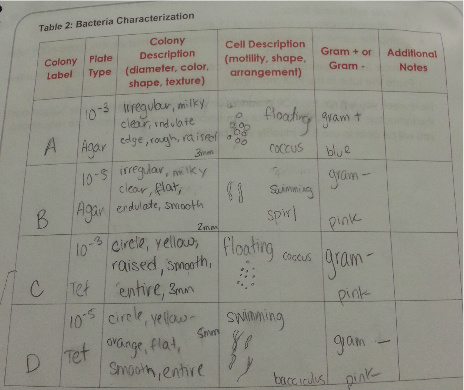 Table 2: Bacteria Characterization
Colony Label
Plate Type
Colony Description (diameter, color, shape, texture)
Cell Description (motility, shape, arrangement)
Gram + or Gram -
Additional Notes
A
10-3
Agar
irregular, milky
clear, undulate
edge, rough, raised
3mm
floating
coccus
gram +
blue
B
10-5
Agar
irregular, milky
clear, flat,
endulate, smooth
2mm
swimming
spirl
gram-
pink
C
10-3
Tet
circle, yellow,
raised, smooth,
entire, 3mm
floating coccus
gram-
pink
D
10-5
Tet
circle, yellow-
5mm
orange, flat,
smooth, entire
swimming
bacciculus
gram -
pink